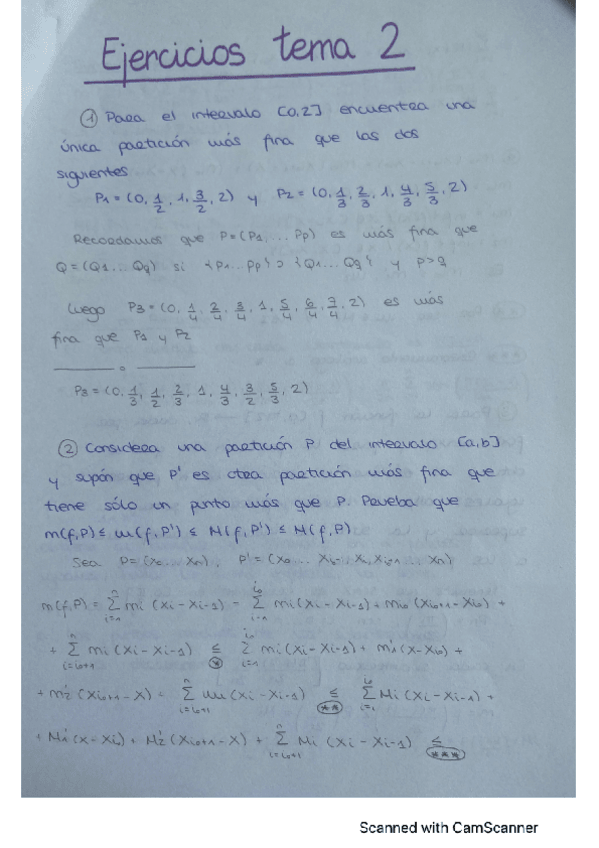 Ejercicios tema 2
① Para el intervalo [0,2] encuentra una
única partición más fina que las dos
siguientes
P1 = (0, 1/2, 1, 3/2, 2) y P2 = (0, 1/3, 2/3, 1, 4/3, 5/3, 2)
Recordamos que P=(P1,... Pp) es más fina que
Q = (Q1... Qq) si {P1... Pp} ⊃ {Q1... Qq} y p>q
Luego P3 = (0, 1/4, 2/4, 3/4, 1, 5/4, 6/4, 7/4, 2) es más
fina que P1 y P2
P3 = (0, 1/3, 1/2, 2/3, 1, 4/3, 3/2, 5/3, 2)
② Considera una partición P del intervalo [a,b]
y supón que P' es otra partición más fina que
tiene sólo un punto más que P. Prueba que
m(f,P) ≤ m(f,P') ≤ M(f,P') ≤ M(f,P)
Sea P = (x0... xn), P' = (x0... xi0, x, xi0+1 ... xn)
m(f,P) = Σ mi (xi - xi-1) = Σ mi (xi - xi-1) + mi0 (xi0+1 - xi0) +
+ Σ mi (xi - xi-1) ≤ Σ mi (xi - xi-1) + m'1 (x - xi0) +
+ m'2 (xi0+1 - x) + Σ mi (xi - xi-1) ≤ Σ Mi (xi - xi-1) +
+ M'1 (x - xi0) + M'2 (xi0+1 - x) + Σ Mi (xi - xi-1) ≤
Scanned with CamScanner